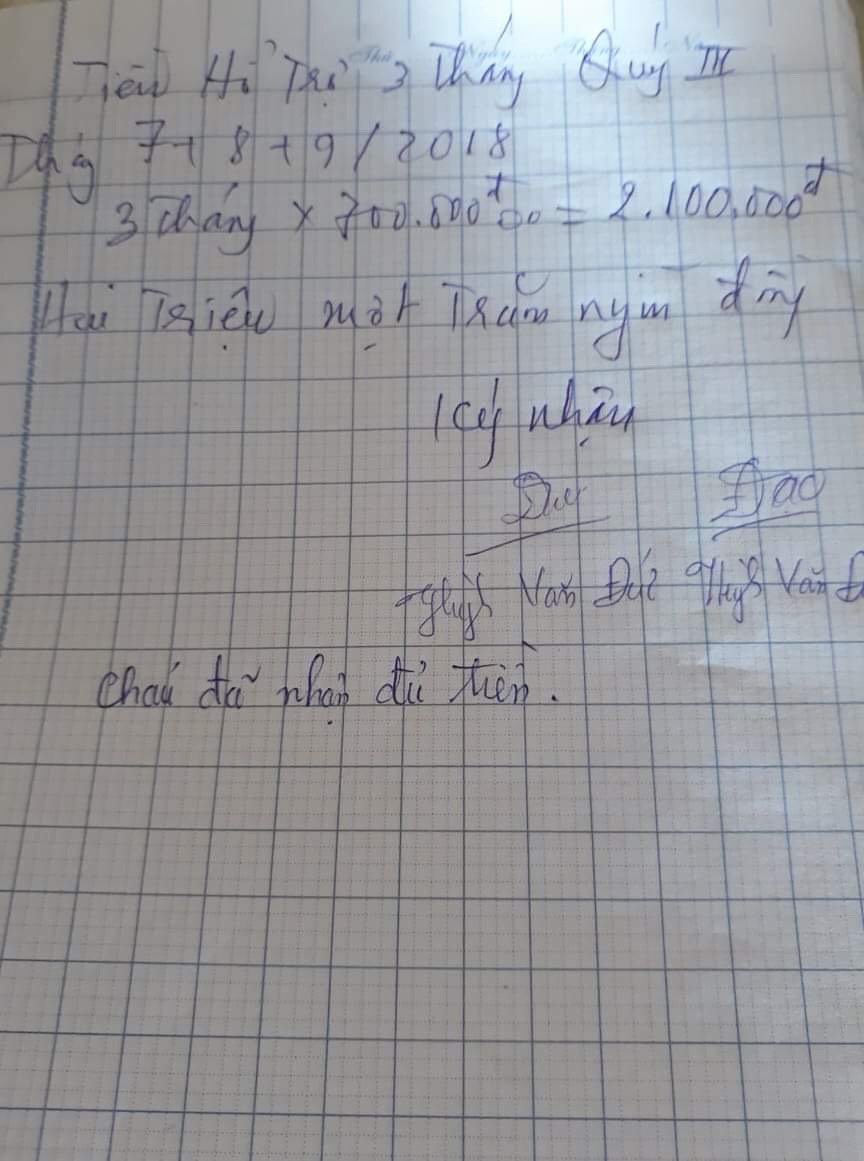 Tiền Hỗ Trợ 3 Tháng Quý III
Tháng 7 + 8 + 9 / 2018
3 Tháng × 700.000đ = 2.100.000đ
Hai Triệu một Trăm nghìn đồng
Ký nhận
Đức Đạo
Văn Đức Văn Đ
Cháu đã nhận đủ tiền.